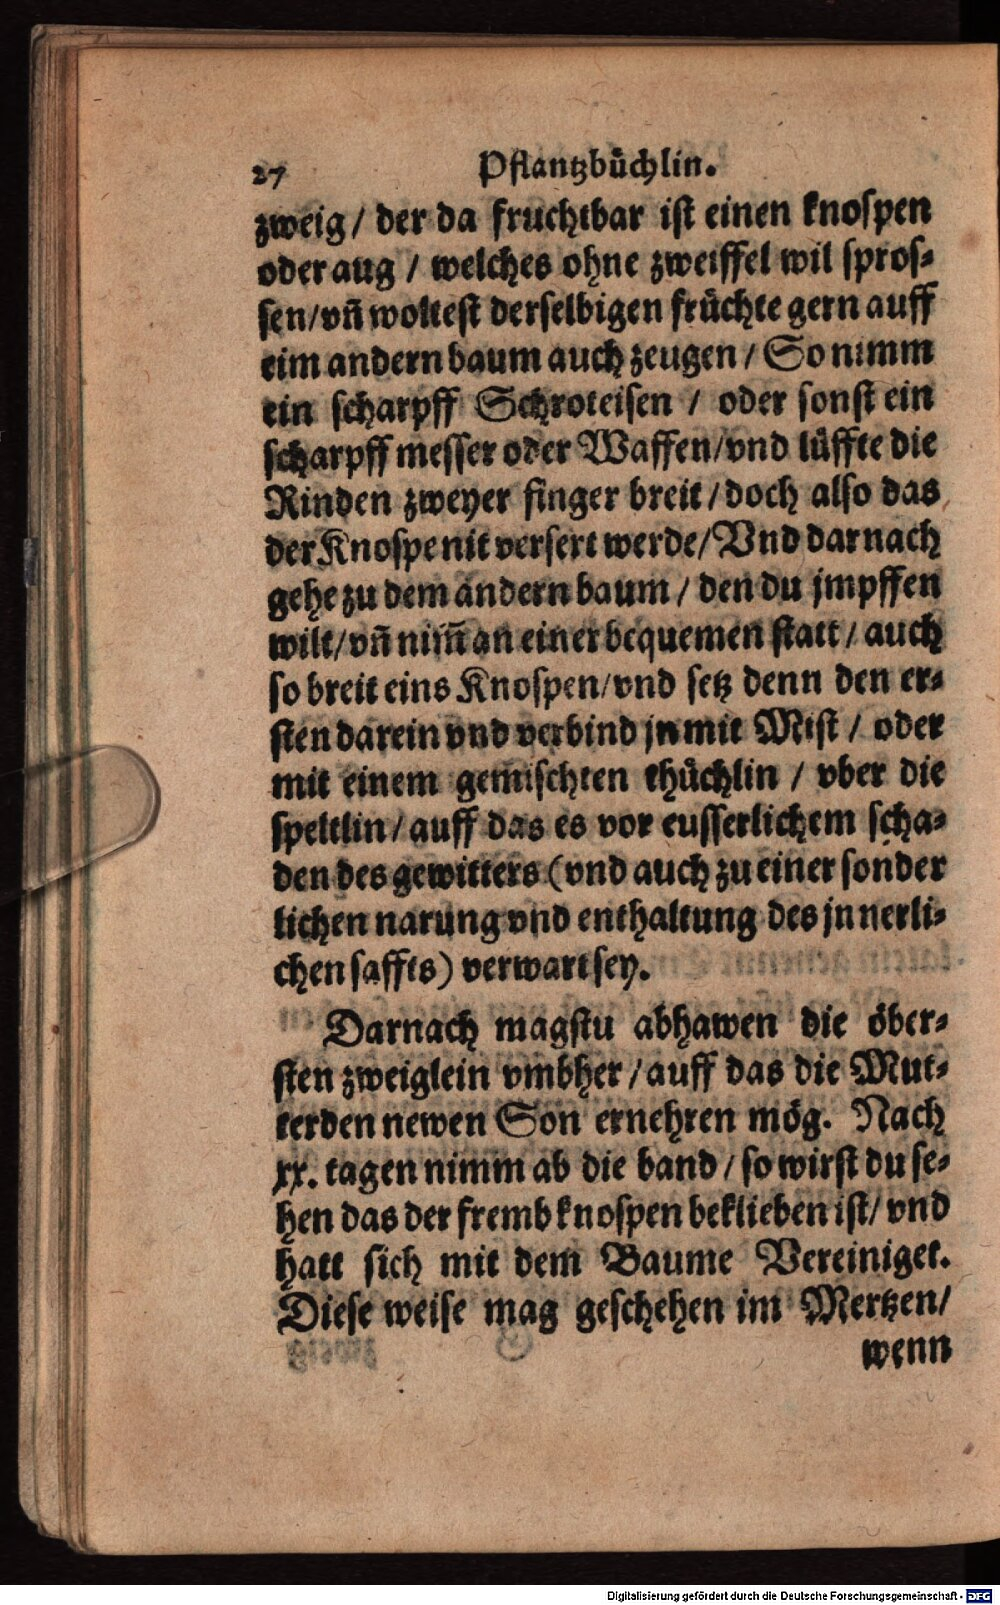 27 Pflantzbüchlin.
zweig / der da fruchtbar ist einen knospen
oder aug / welches ohne zweiffel wil spros-
sen/vñ woltest derselbigen früchte gern auff
eim andern baum auch zeugen / So nimm
ein scharpff Schroteisen / oder sonst ein
scharpff messer oder Waffen/vnd lüffte die
Rinden zweyer finger breit / doch also das
der Knospe nit versert werde/ Vnd darnach
gehe zu dem andern baum / den du jmpffen
wilt/ vñ nim̃ an einer bequemen statt / auch
so breit eins Knospen/vnd setz denn den er-
sten darein vnd verbind jn mit Mist / oder
mit einem gemischten thüchlin / vber die
speltlin / auff das es vor eusserlichem scha-
den des gewitters (vnd auch zu einer sonder
lichen narung vnd enthaltung des jnnerli-
chen saffts) verwart sey.
Darnach magstu abhawen die öber-
sten zweiglein vmbher / auff das die Mut-
ter den newen Son ernehren mög. Nach
xx. tagen nimm ab die band / so wirst du se-
hen das der fremb knospen beklieben ist/ vnd
hatt sich mit dem Baume Vereiniget.
Diese weise mag geschehen im Mertzen/
wenn
Digitalisierung gefördert durch die Deutsche Forschungsgemeinschaft - DFG